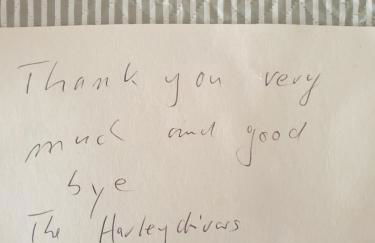 Thank you very
much and good
bye
The Harleydivars